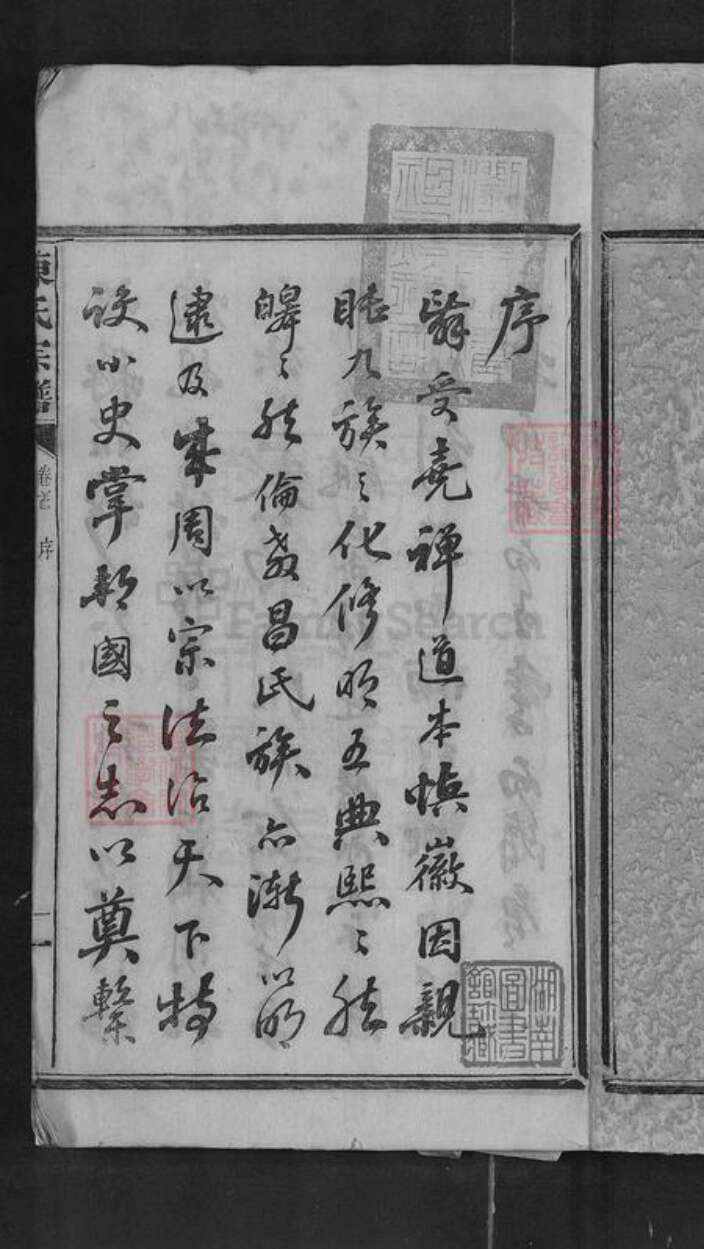 序
舜受堯禪道本慎徽因親
睦九族之化修明五典熙熙然
皞皞然倫敘昌氏族亦漸以明
逮及成周以宗法治天下特
設小史掌邦國之志以奠繫
陳氏宗譜
卷首 序
二
湖南圖書館珍藏
FamilySearch